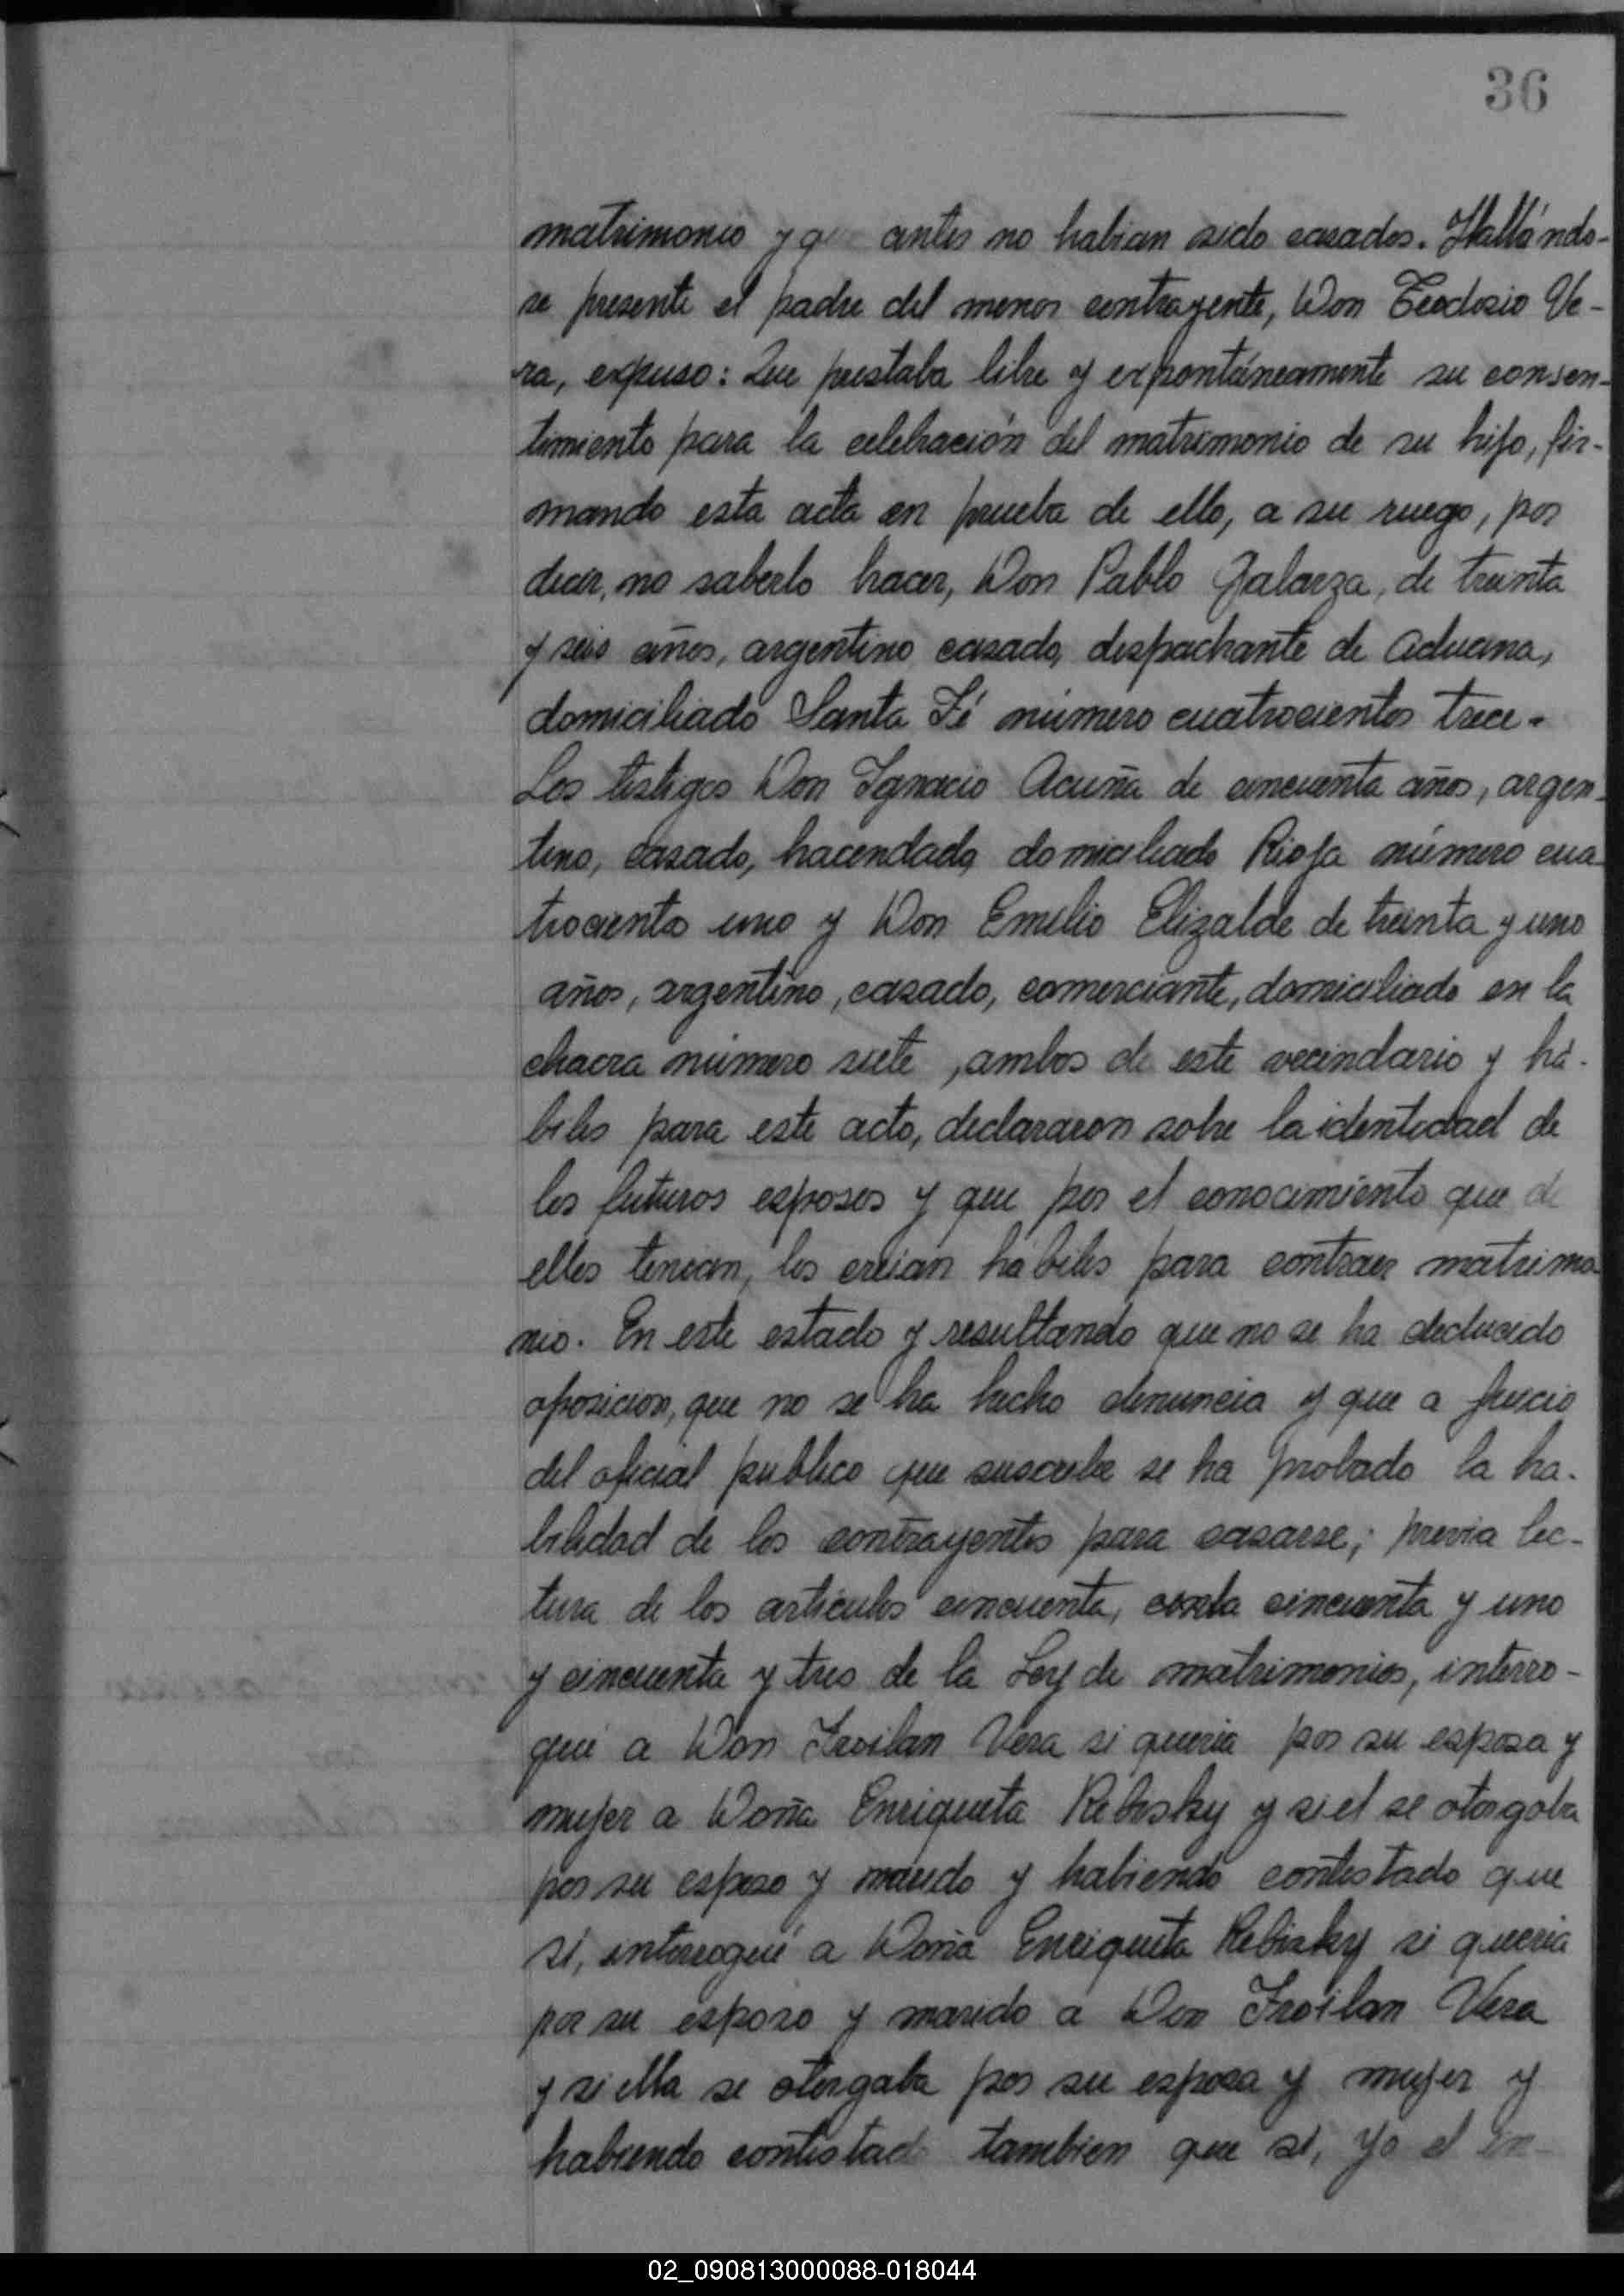 36
matrimonio y que antes no habian sido casados. Hallándo-
se presente el padre del menor contrayente, Don Teodosio Ve-
ra, expuso: Que prestaba libre y expontáneamente su consen-
timiento para la celebración del matrimonio de su hijo, fir-
mando esta acta en prueba de ello, a su ruego, por
decir, no saberlo hacer, Don Pablo Galarza, de treinta
y seis años, argentino casado, despachante de Aduana,
domiciliado Santa Fé número cuatrocientos trece.
Los testigos Don Ignacio Acuña de cincuenta años, argen-
tino, casado, hacendado, domiciliado Rioja número cua
trocientos uno y Don Emilio Elizalde de treinta y uno
años, argentino, casado, comerciante, domiciliado en la
chacra número siete, ambos de este vecindario y há-
biles para este acto, declararon sobre la identidad de
los futuros esposos y que por el conocimiento que de
ellos tenian, los creian hábiles para contraer matrimo
nio. En este estado y resultando que no se ha deducido
oposicion, que no se ha hecho denuncia y que a juicio
del oficial publico que suscribe se ha probado la ha-
bilidad de los contrayentes para casarse; previa lec-
tura de los articulos cincuenta, cincuenta y uno
y cincuenta y tres de la Ley de matrimonios, interro-
gué a Don Froilan Vera si queria por su esposa y
mujer a Doña Enriqueta Rebisky y si el se otorgaba
por su esposo y marido y habiendo contestado que
sí, interrogué a Doña Enriqueta Rebisky si queria
por su esposo y marido a Don Froilan Vera
y si ella se otorgaba por su esposa y mujer y
habiendo contestado tambien que sí, Yo el in-
02_090813000088-018044